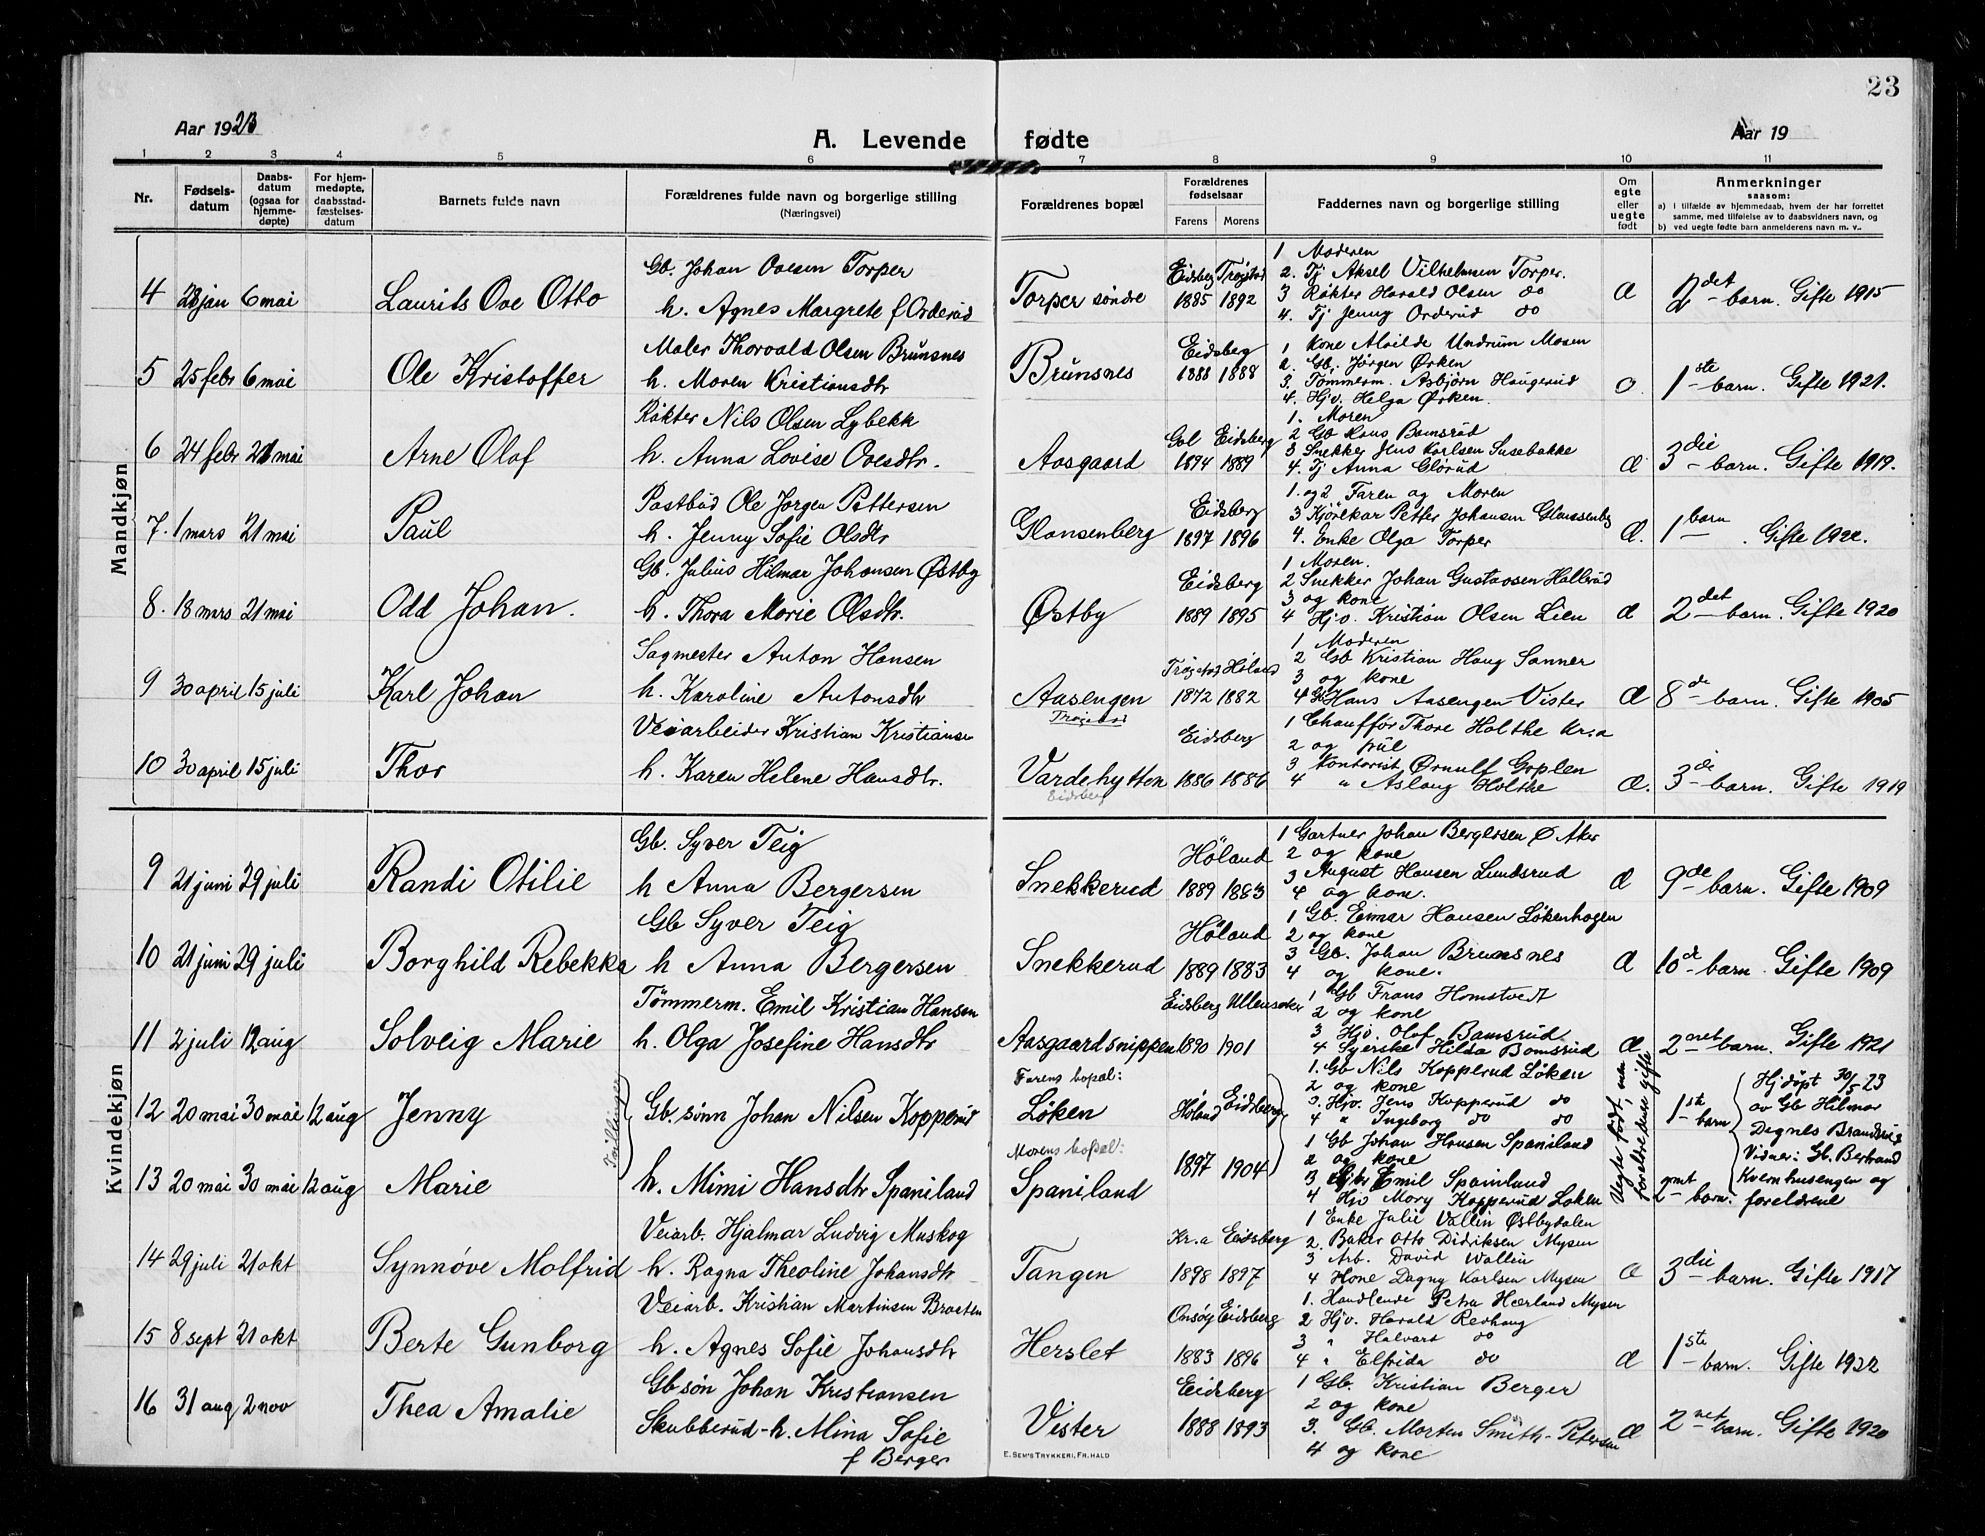 23
Aar 1923
A. Levende fødte
Aar 19
1 2 3 4 5 6 7 8 9 10 11
Nr.
Fødsels-
datum
Daabs-
datum
(ogsaa for
hjemme-
døpte)
For hjem-
medøpte,
daabsstad-
fæstelses-
datum
Barnets fulde navn
Forældrenes fulde navn og borgerlige stilling
(Næringsvei)
Forældrenes bopæl
Forældrenes
fødselsaar
Farens Morens
Faddernes navn og borgerlige stilling
Om
egte
eller
uegte
født
Anmerkninger
saasom:
a) i tilfælde av hjemmedaab, hvem der har forrettet
samme, med tilføielse av to daabsvidners navn, og
b) ved uegte fødte barn anmelderens navn m. v..
Mandkjøn
4 28 jan 6 mai Laurits Ove Otto
Gb. Johan Ovesen Torper
h. Agnes Margrete f Orderud
Torper søndre
Eidsberg Trøgstad
1885 1892
1 Moderen
2. Tj Aksel Vilhelmsen Torper.
3 Røkter Harald Olsen do
4. Tj Jenny Orderud do
2det barn. Gifte 1915
5 25 febr 6 mai Ole Kristoffer
Maler Thorvald Olsen Brunsnes
h. Maren Kristiansdtr
Brunsnes
Eidsberg
1888 1888
1 Kone Alvilde Undrum Mosen
2. Gb. Jörgen Ørken
3. Tömmerm. Asbjörn Haugerud
4. Hjv. Helga Ørken.
1ste barn. Gifte 1921.
6 24 febr 21 mai Arne Olaf
Røkter Nils Olsen Lybekk
h. Anna Lovise Ovesdtr.
Aasgaard
Gol Eidsberg
1894 1889
1. Moren
2 Gb Hans Bamsrud
3 Snekker Jens Karlsen Susebakke
4. Tj Anna Glörud
3die barn. Gifte 1919.
7. 1 mars 21 mai Paul
Postbud Ole Jørgen Pettersen
h. Jenny Sofie Olsdtr
Glansenberg
Eidsberg
1897 1896
1. og 2 Faren og Moren
3 Kjörekar Petter Johansen Glanssenbg
4. Enke Olga Torper
1 barn. Gifte 1922.
8. 18 mars 21 mai Odd Johan.
Gb. Julius Hilmar Johansen Østby
h. Thora Marie Olsdtr.
Østby
Eidsberg
1889 1895
1 Moren.
2 Snekker Johan Gustavsen Hallerud
3 og kone
4 Hjv. Kristian Olsen Lien
2det barn. Gifte 1920
9 30 april 15 juli Karl Johan
Sagmester Anton Hansen
h. Karoline Antonsdtr
Aasengen
Trøgstad
Trøgstad Høland
1872 1882
1 Moderen
2 Gb Kristian Haug Sanner
3 og kone
4 Gb Hans Aasengen Vister
8de barn. Gifte 1905
10 30 april 15 juli Thor
Veiarbeider Kristian Kristiansen
h. Karen Helene Hansdtr.
Vardehytten
Eidsberg
Eidsberg
1886 1886
1 Chauffør Thore Holthe Kr.a
2 og frue
3 Kontorist Ørnulf Goplen
4 " Aslaug Holthe
3di barn. Gifte 1919
Kvindekjøn
9 21 juni 29 juli Randi Otilie
Gb. Syver Teig
h Anna Bergersen
Snekkerud
Høland
1889 1883
1 Gartner Johan Bergersen Ø Aker
2 og kone
3 August Hansen Lundsrud
4 og kone.
9de barn. Gifte 1909
10 21 juni 29 juli Borghild Rebekka
Gb Syver Teig
h Anna Bergersen
Snekkerud
Høland
1889 1883
1 Gb. Einar Hansen Løkenhagen
2 og kone
3 Gb. Johan Brunsnes
4 og kone.
10de barn. Gifte 1909
11 2 juli 12 aug Solveig Marie
Tömmerm. Emil Kristian Hansen
h. Olga Josefine Hansdtr
Aasgaardsnippen
Eidsberg Ullensaker
1890 1901
1 Gb Frans Homstvedt
2 og kone
3 Hjv. Olof Bamsrud
4 Syerske Hilda Bamsrud
2net barn. Gifte 1921
12 20 mai 30 mai 12 aug Jenny
Tvillinger
Gb. sønn Johan Nilsen Kopperud
Farens bopæl:
Løken
Høland Eidsberg
1. Gb Nils Kopperud Løken
2 og kone
3. Hjv. Jens Kopperud do
4 " Ingeborg do do
Uegte født, men
forældre disse gifte
1ste barn
Hjdøpt 30/5 23
av Gb Hilmar
Degnes Brandsrud
Vidner: Gb. Bertrand
Kvernhusengen og
forældrene
13 20 mai 30 mai 12 aug Marie
h. Mimi Hansdtr Spaniland
Morens bopæl:
Spaniland
1897 1904
1 Gb Johan Hansen Spaniland
2 og kone
3 Gbr Emil Spaniland
4 Hjv Mary Kopperud Løken
2net barn.
14 29 juli 21 okt Synnøve Molfrid
Veiarb. Hjalmar Ludvig Muskog
h. Ragna Theoline Johansdtr
Tangen
Kr.a Eidsberg
1898 1897
1 Enke Julie Vallin Østbydalen
2. Baker Otto Didriksen Mysen
3 Arb. David Wallin
4 Kone Dagny Karlsen Mysen
3die barn. Gifte 1917
15 8 sept 21 okt Berte Gunborg
Veiarb. Kristian Martinsen Braaten
h. Agnes Sofie Johansdtr
Herslet
Onsöy Eidsberg
1883 1896
1. Handlende Petra Hærland Mysen
2 Hjv. Harald Redhaug
3 " Halvard do
4 " Elfrida do
1ste barn. Gifte 1922
16 31 aug 2 nov Thea Amalie
Gb søn Johan Kristiansen
Skubberud - h. Mina Sofie
f Berger
Vister
Eidsberg
1888 1893
1 Gb. Kristian Berger
2 og kone
3. Gb. Morten Smith-Petersen
4 og kone
2net barn. Gifte 1920
E. SEM'S TRYKKERI, FR.HALD